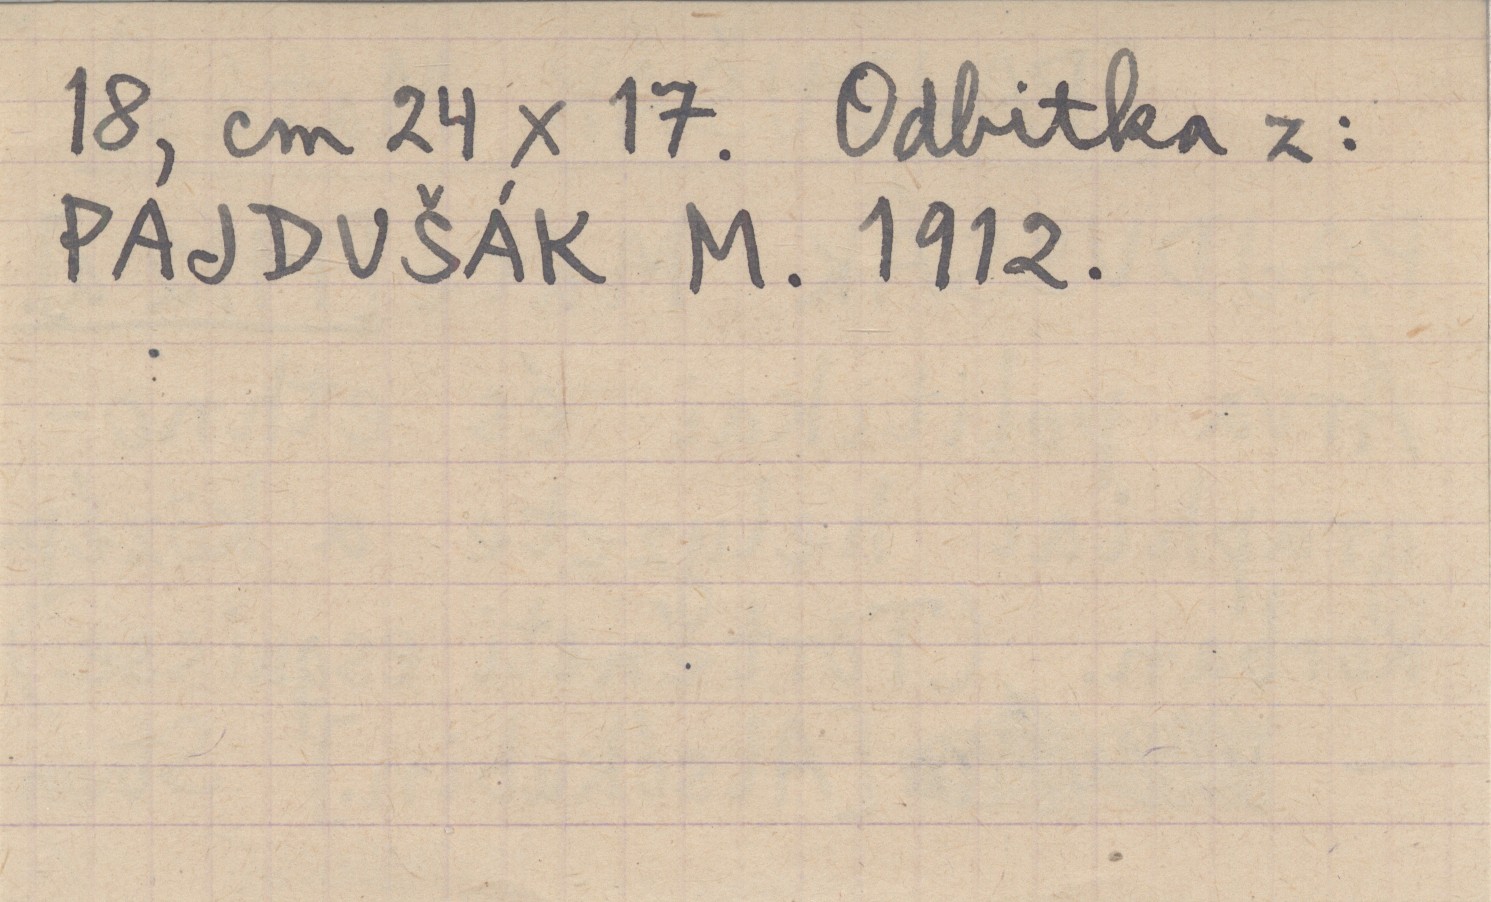 18, cm 24 x 17. Odbitka z:
PAJDUŠÁK M. 1912.